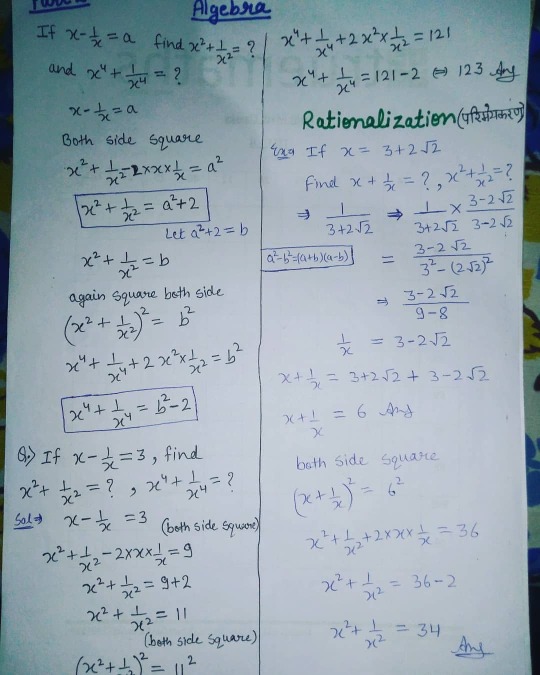 Algebra
If x - 1/x = a find x² + 1/x² = ?
and x⁴ + 1/x⁴ = ?
x - 1/x = a
Both side square
x² + 1/x² - 2 × x × 1/x = a²
x² + 1/x² = a² + 2
Let a² + 2 = b
x² + 1/x² = b
again square both side
(x² + 1/x²)² = b²
x⁴ + 1/x⁴ + 2 x² × 1/x² = b²
x⁴ + 1/x⁴ = b² - 2
Q.) If x - 1/x = 3, find
x² + 1/x² = ?, x⁴ + 1/x⁴ = ?
Sol ⇒ x - 1/x = 3 (both side square)
x² + 1/x² - 2 × x × 1/x = 9
x² + 1/x² = 9 + 2
x² + 1/x² = 11
(both side square)
(x² + 1/x²)² = 11²
x⁴ + 1/x⁴ + 2 x² × 1/x² = 121
x⁴ + 1/x⁴ = 121 - 2 ⇔ 123 Ans
Rationalization (परिमेयकरण)
If x = 3 + 2√2
Find x + 1/x = ?, x² + 1/x² = ?
⇒ 1/(3 + 2√2) ⇒ 1/(3 + 2√2) × (3 - 2√2)/(3 - 2√2)
a² - b² = (a + b)(a - b) = (3 - 2√2)/(3² - (2√2)²)
⇒ (3 - 2√2)/(9 - 8)
1/x = 3 - 2√2
x + 1/x = 3 + 2√2 + 3 - 2√2
x + 1/x = 6 Ans
both side square
(x + 1/x)² = 6²
x² + 1/x² + 2 × x × 1/x = 36
x² + 1/x² = 36 - 2
x² + 1/x² = 34
Ans